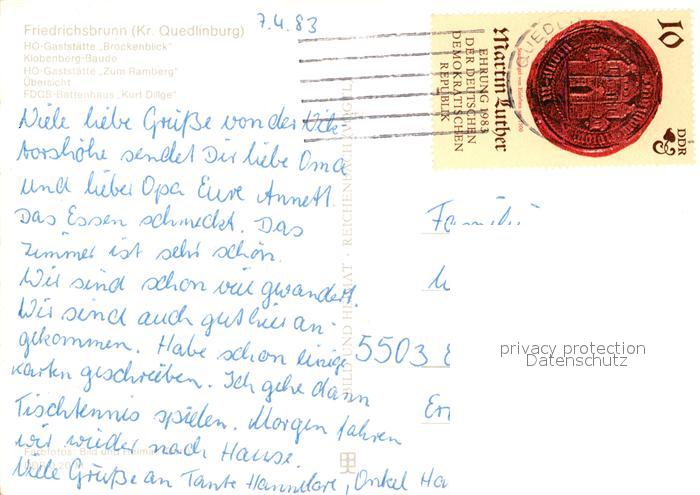 Friedrichsbrunn (Kr. Quedlinburg)
HO-Gaststätte „Brockenblick"
Klobenberg-Baude
HO-Gaststätte „Zum Ramberg"
Übersicht
FDGB-Bettenhaus „Kurt Dillge"
7.4.83
Viele liebe Grüße von der Vik
torshöhe sendet Dir liebe Oma
und lieber Opa Eure Annett.
Das Essen schmeckt. Das
Zimmer ist sehr schön.
Wir sind schon viel gwandert.
Wir sind auch gut hier an-
gekommen. Habe schon einige
Karten geschrieben. Ich gehe dann
Tischtennis spielen. Morgen fahren
wir wieder nach Hause.
Viele Grüße an Tante Hannelore, Onkel Ha
Farbfotos: Bild und Heimat
BILD UND HEIMAT · REICHENBACH (VOGTL)
QUEDLIN
10
DDR
Martin Luther
EHRUNG 1983
DER DEUTSCHEN
DEMOKRATISCHEN
REPUBLIK
Familie
5503
Er
privacy protection
Datenschutz